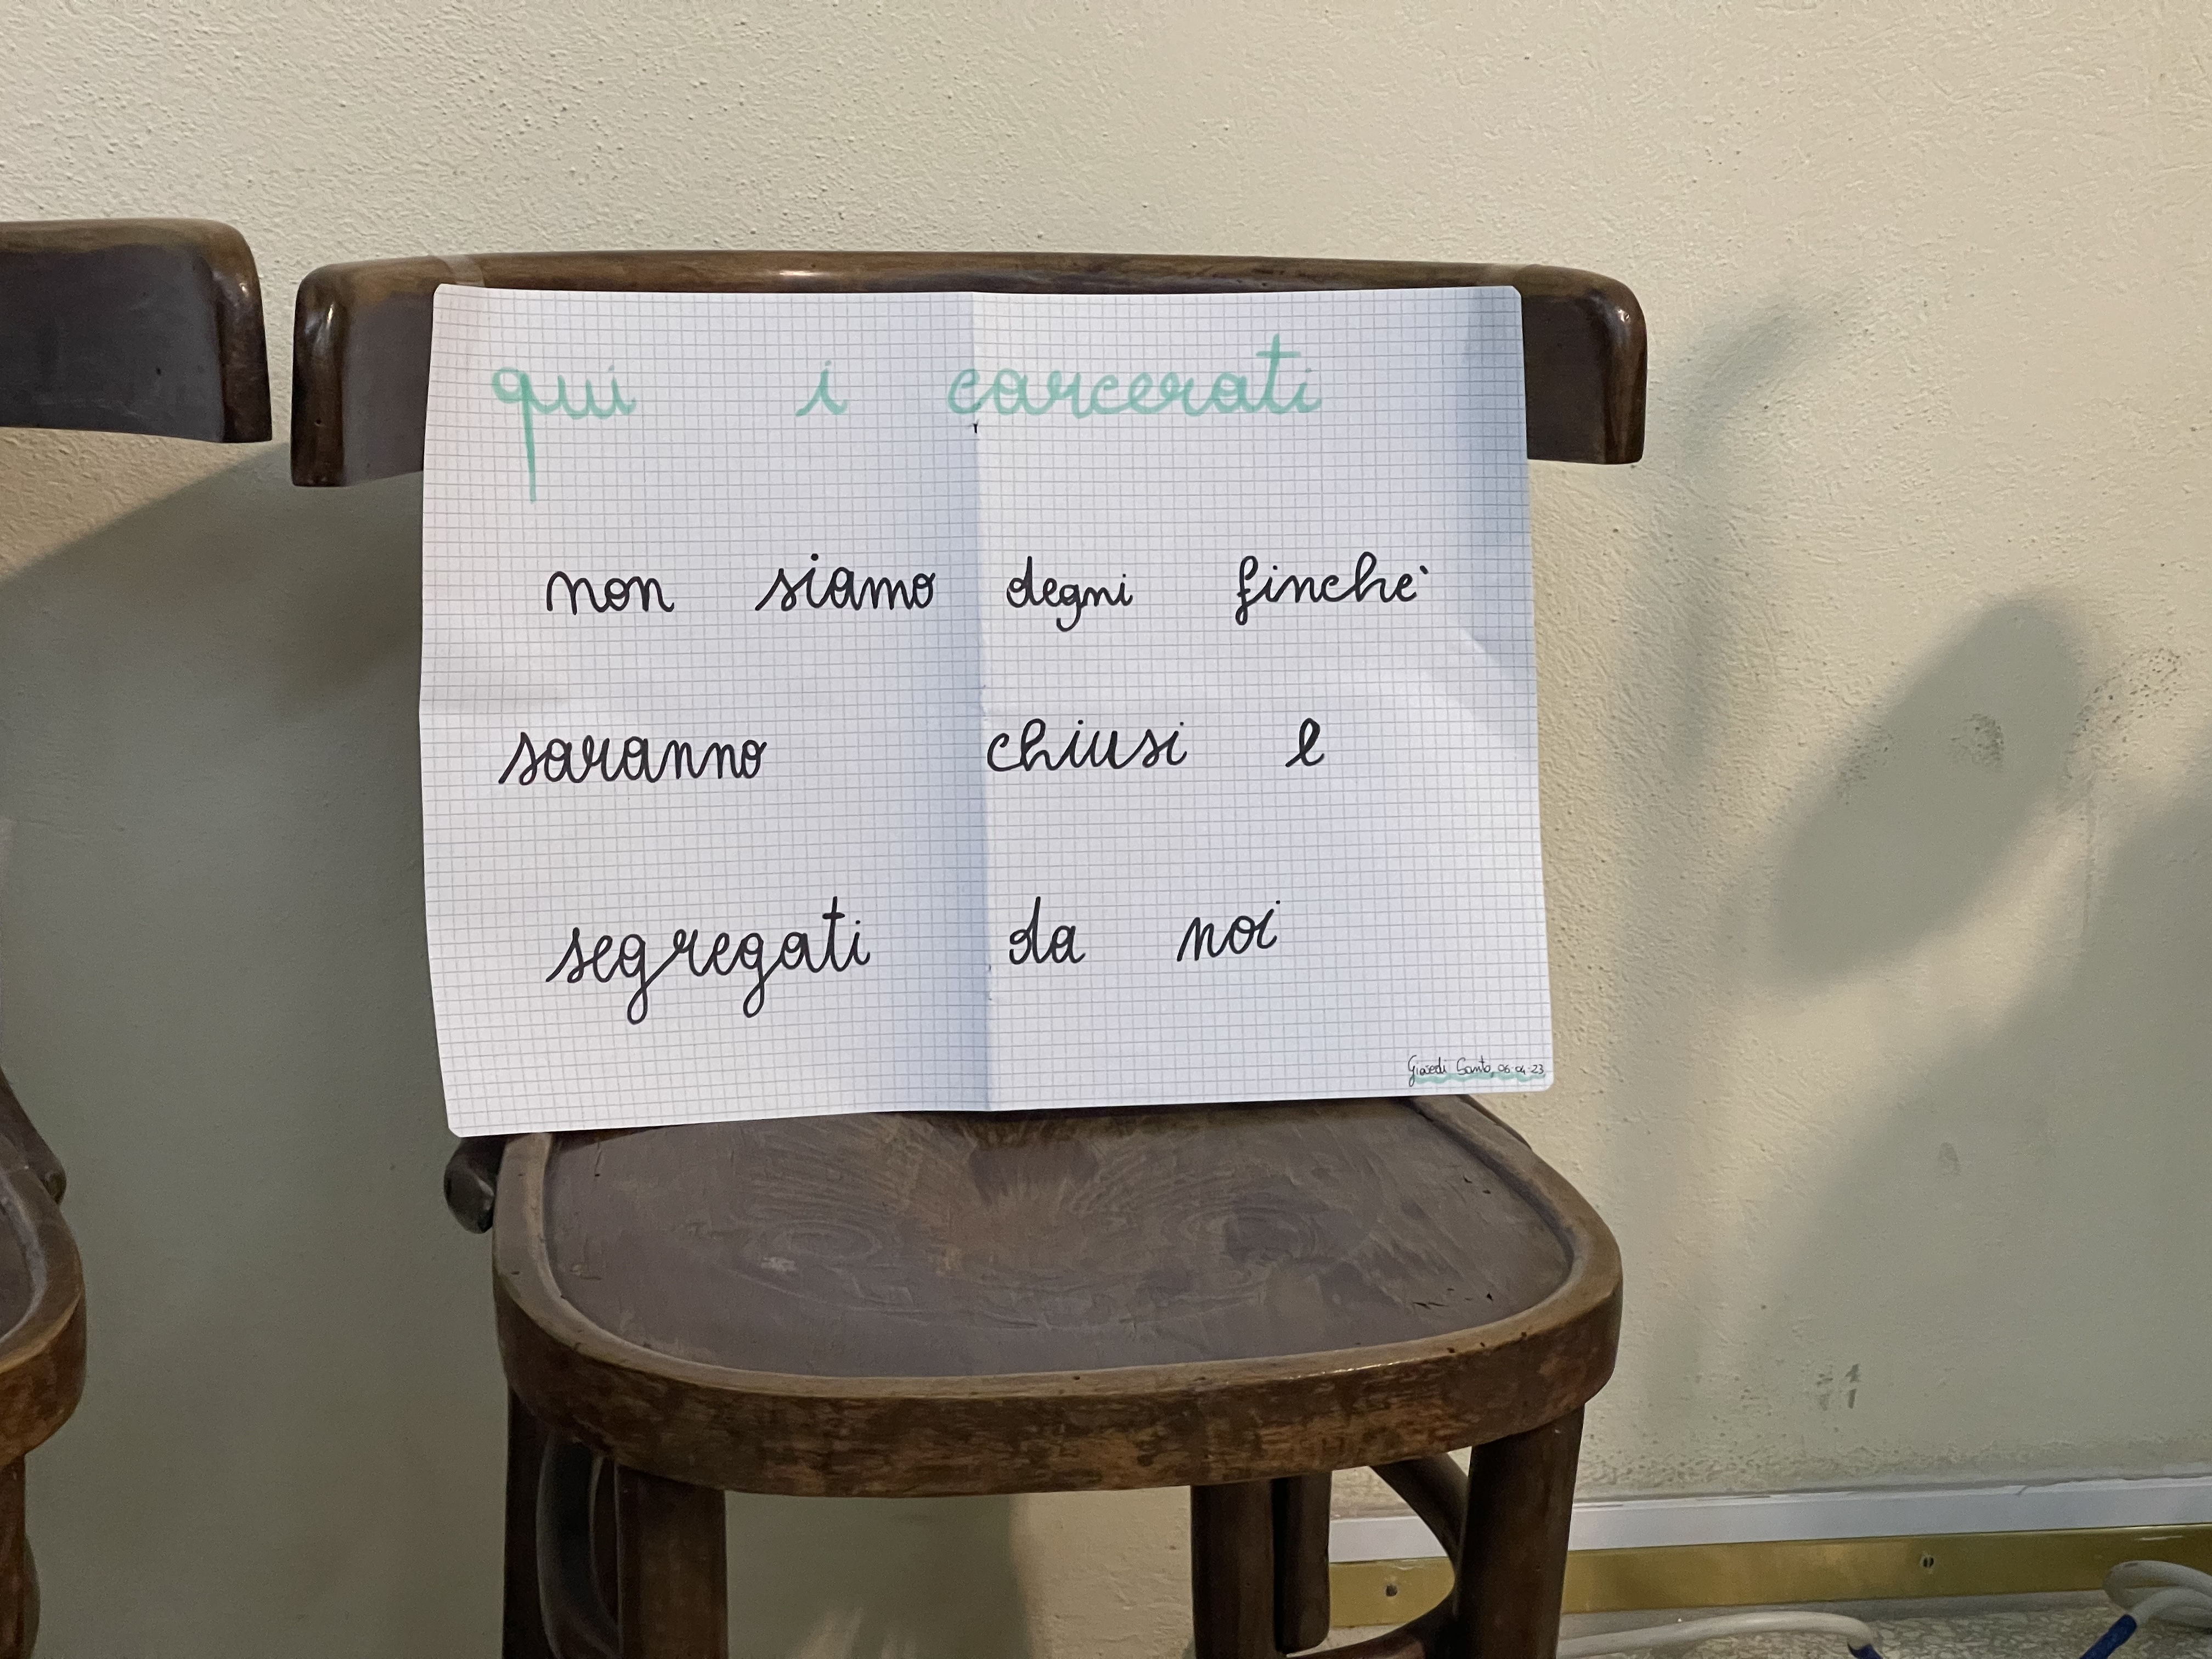 qui i carcerati
non siamo degni finchè
saranno chiusi e
segregati da noi
Giovedì Santo, 06-04-23